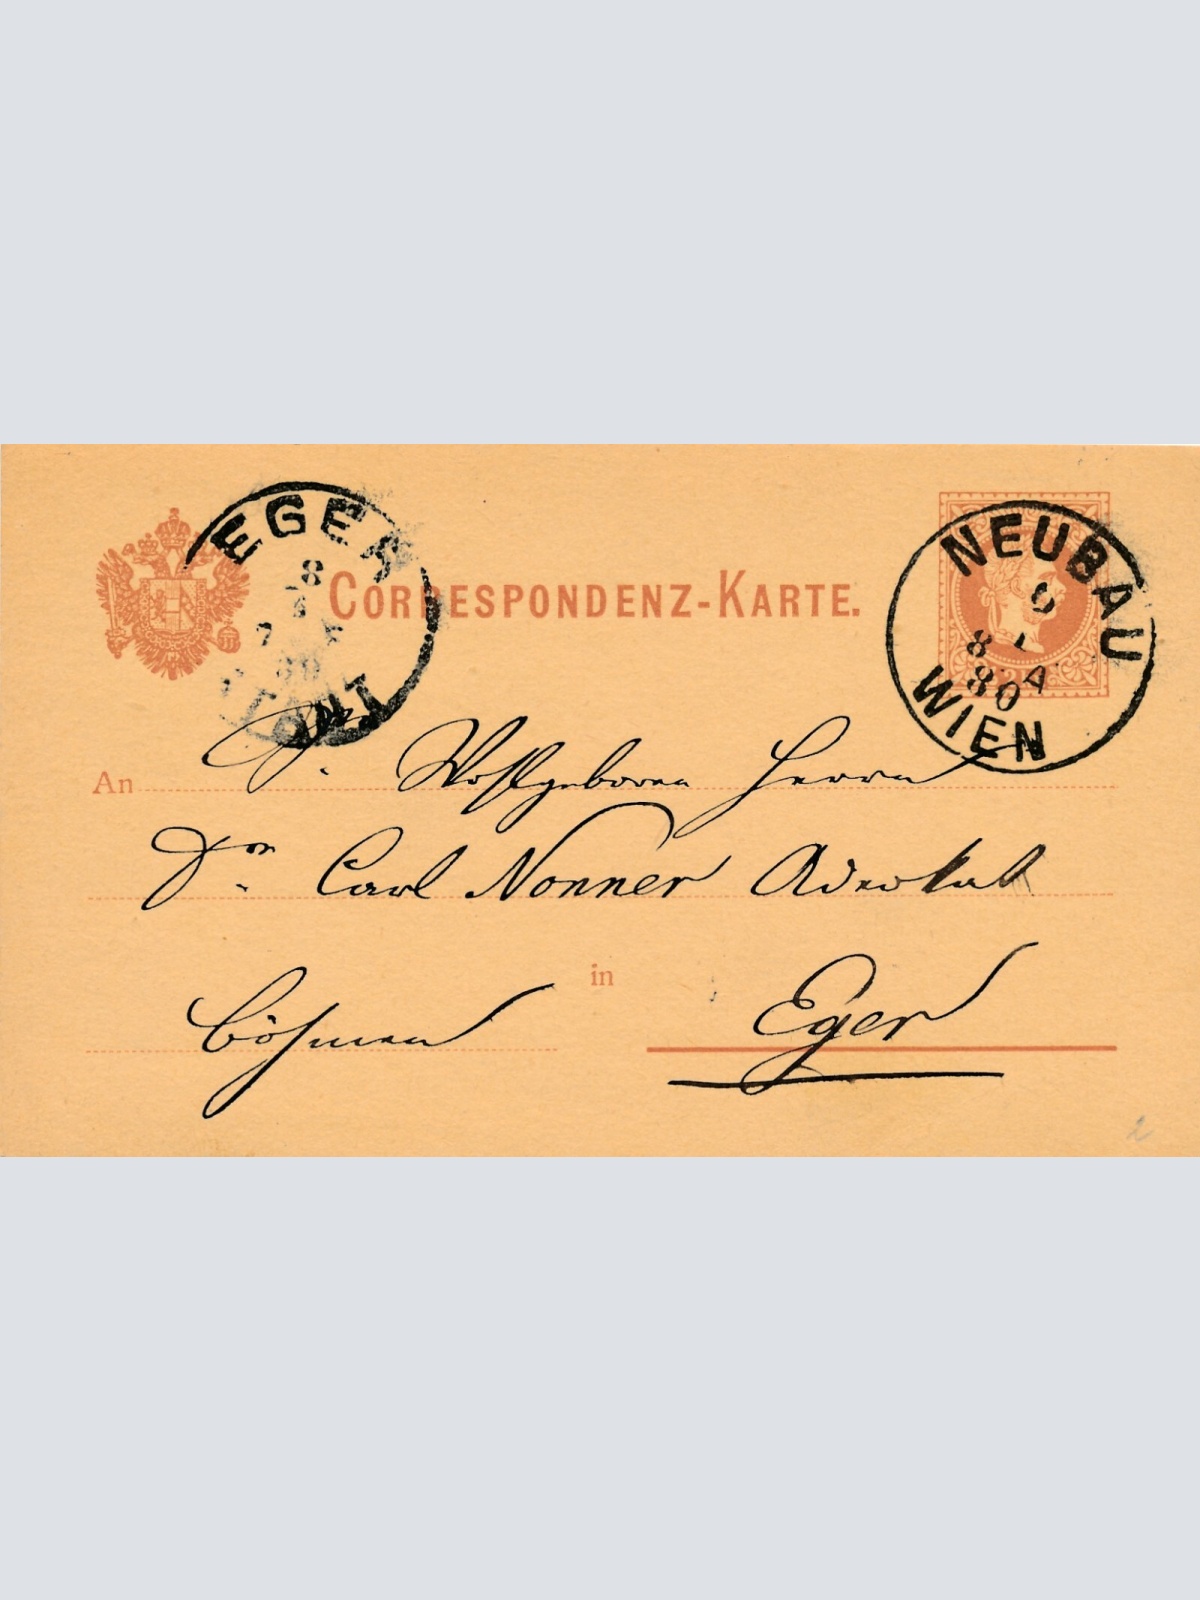 EGER
8
7
80
STADT
CORRESPONDENZ-KARTE.
NEUBAU
8 A
80
WIEN
An Sr. Wohlgeboren Herrn
Dr. Carl Nonner Advokat
in
Böhmen Eger
2